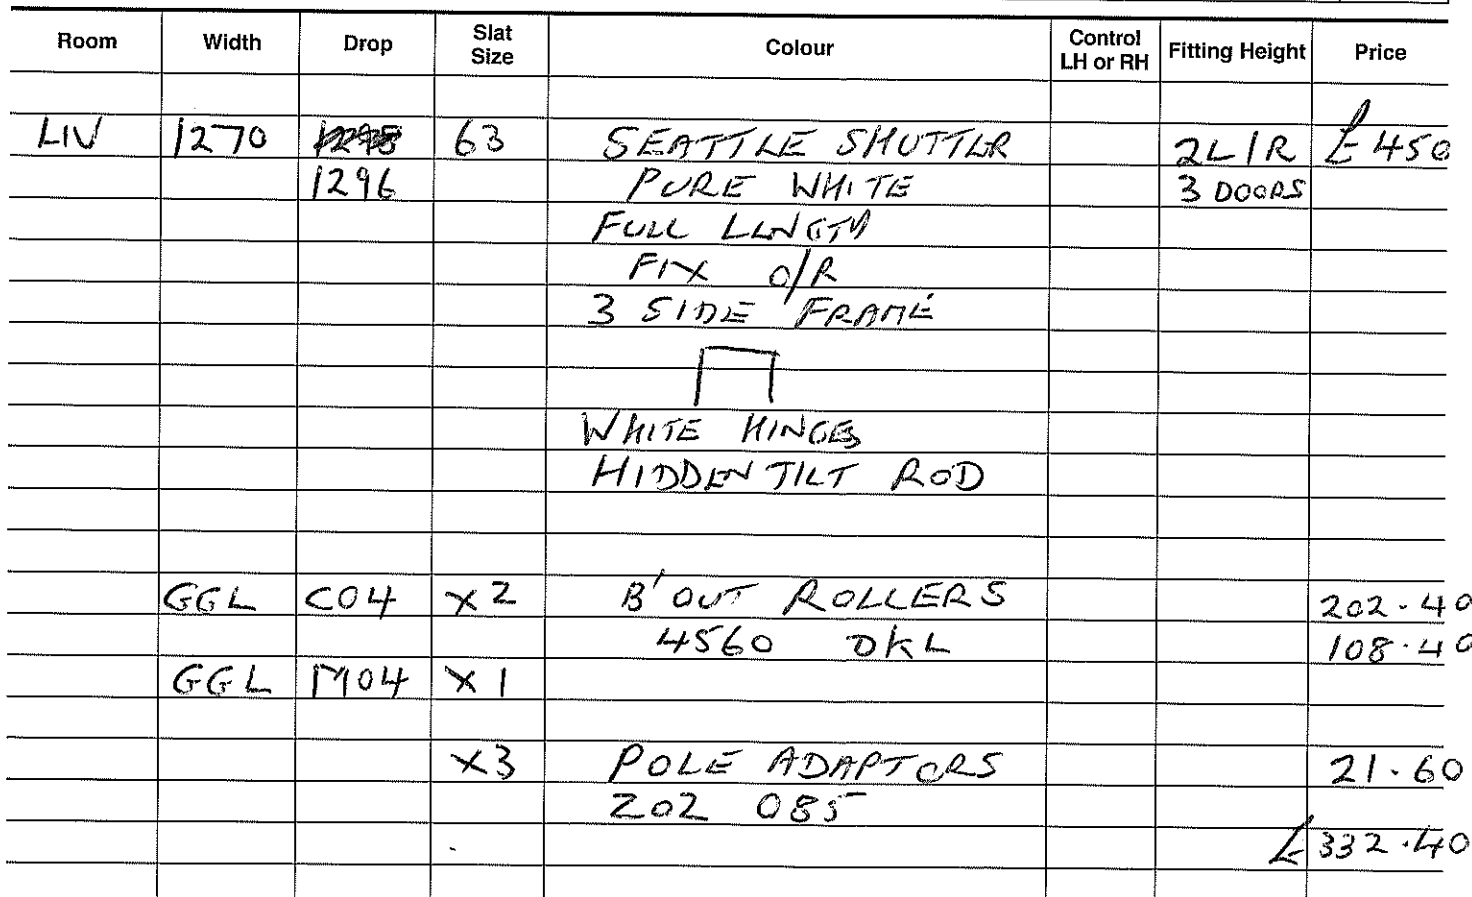 Room Width Drop Slat Size Colour Control LH or RH Fitting Height Price
LIV 1270 63 SEATTLE SHUTTER 2L1R £450
1296 PURE WHITE 3 DOORS
FULL LENGTH
FIX O/R
3 SIDE FRAME
WHITE HINGES
HIDDEN TILT ROD
GGL C04 X2 B'OUT ROLLERS 202.40
4560 DKL 108.40
GGL M04 X1
X3 POLE ADAPTORS 21.60
202 085
£332.40